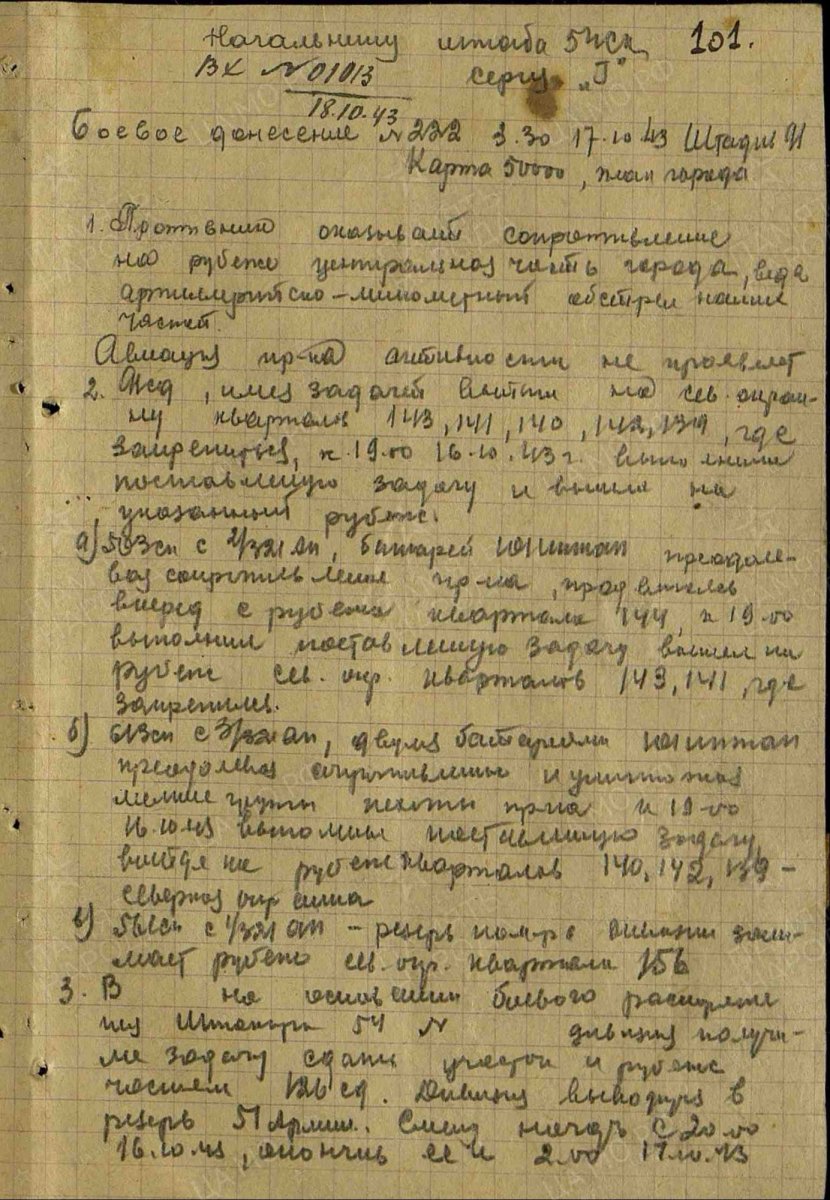 Начальнику штаба 54ск 101.
Вх №01013 серия „Г"
18.10.43
Боевое донесение №222 3.30 17.10.43 Штадив 91
Карта 50000, план города
1. Противник оказывает сопротивление
на рубеже центральная часть города, ведя
артиллерийско-минометный обстрел наших
частей.
Авиация пр-ка активности не проявляет
2. 91сд, имея задачей выйти на сев. окраи-
ну кварталов 143, 141, 140, 142, 139, где
закрепиться, к 19.00 16.10.43г. выполнила
поставленную задачу и вышла на
указанный рубеж.
а) 503сп с 2/321ап, батареей иптап преодоле-
вая сопротивление пр-ка, продвигаясь
вперед с рубежа квартала 144, к 19.00
выполнил поставленную задачу вышел на
рубеж сев. окр. кварталов 143, 141, где
закрепился.
б) 613сп с 3/321ап, двумя батареями иптап
преодолевая сопротивление и уничтожая
мелкие группы пехоты пр-ка к 19-00
16.10.43 выполнил поставленную задачу,
выйдя на рубеж кварталов 140, 142, 139 -
северная окраина
в) 561сп с 1/321ап - резерв ком-ра дивизии зани-
мает рубеж сев. окр. квартала 156
3. В на основании боевого распоряже
ния Штакора 54 № дивизия получи-
ла задачу сдать участок и рубеж
частям 126сд. Дивизия выводится в
резерв 51 Армии. Смену начать с 20.00
16.10.43, окончив ее к 2.00 17.10.43